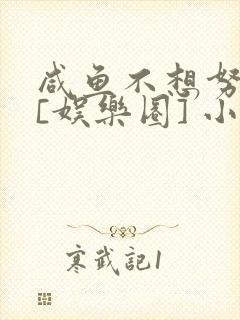 咸鱼不想努
[娱樂圈] 小
寒武記1